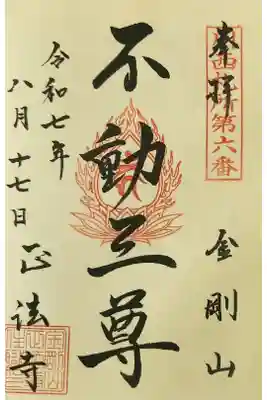 奉拝
第六番
金剛山
不動三尊
正法寺
令和七年
八月十七日